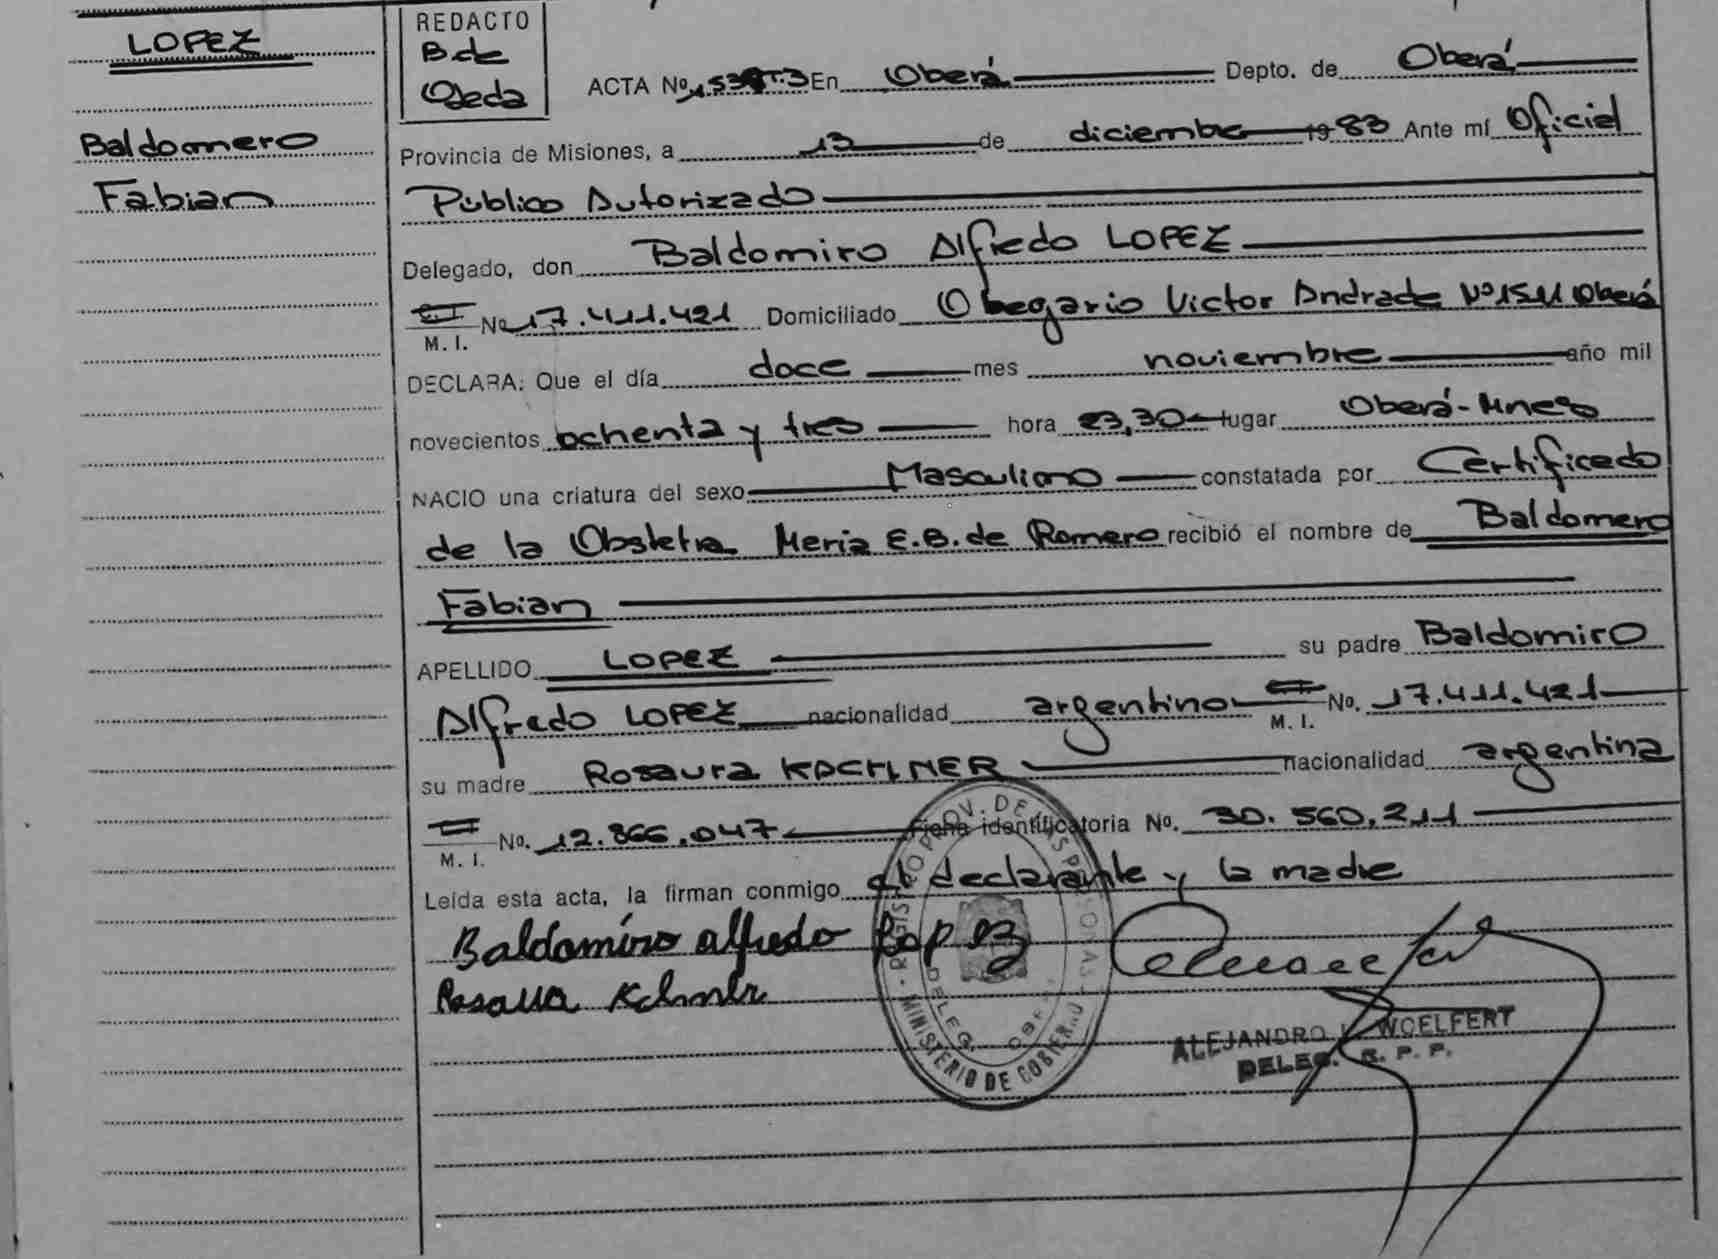 LOPEZ
Baldomero
Fabian
REDACTO
B. de
Ojeda
ACTA No. En Oberá Depto. de Oberá
Provincia de Misiones, a 13 de diciembre 1983 Ante mí Oficial
Público Autorizado
Delegado, don Baldomiro Alfredo LOPEZ
M. I. No. 17.411.421 Domiciliado Obegario Victor Andrade Nº 1511 Oberá
DECLARA: Que el día doce mes noviembre año mil
novecientos ochenta y tres hora 23,30 lugar Oberá-Mnes
NACIO una criatura del sexo Masculino constatada por Certificado
de la Obstetra Maria E.B. de Romero recibió el nombre de Baldomero
Fabian
APELLIDO LOPEZ su padre Baldomiro
Alfredo LOPEZ nacionalidad argentino M. I. No. 17.411.421
su madre Rosaura KACHNER nacionalidad argentina
M. I. No. 12.866.047 Ficha identificatoria No. 30.560.211
Leída esta acta, la firman conmigo el declarante y la madre
Baldomiro alfredo Lopez
REGISTRO PROV. DE LAS PERSONAS
MINISTERIO DE GOBIERNO
DELEG. OBERA
ALEJANDRO WOELFERT
DELEG. R. P. P.